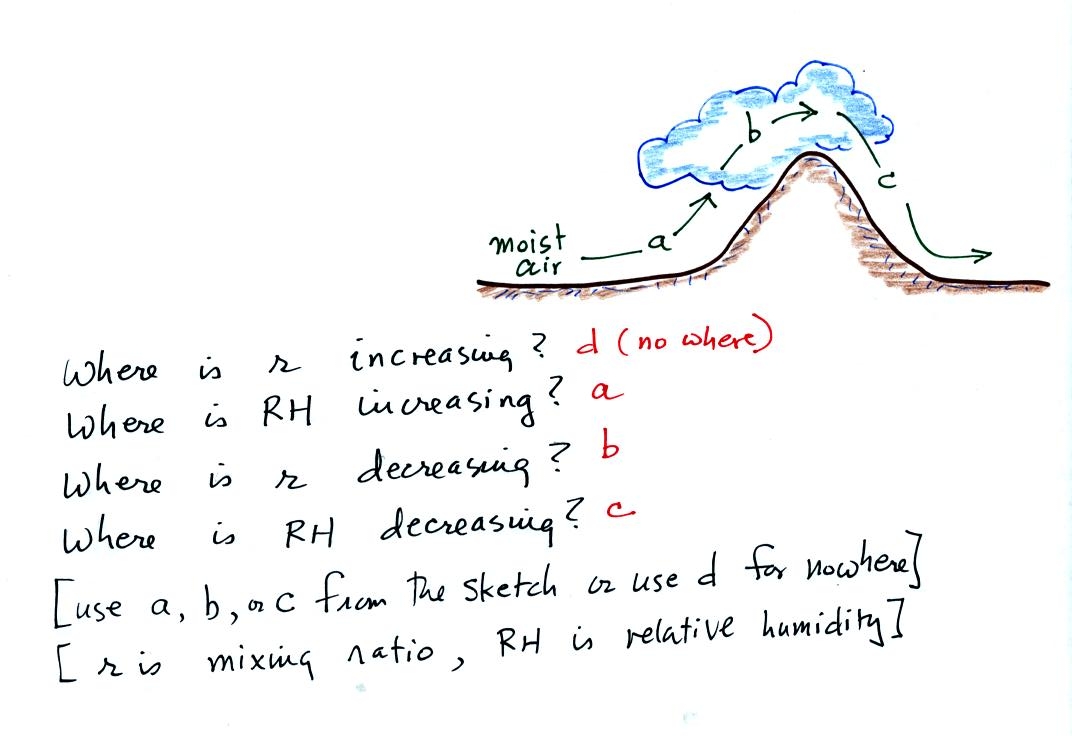 b
c
a
moist
air
Where is r increasing? d (no where)
Where is RH increasing? a
Where is r decreasing? b
Where is RH decreasing? c
[use a, b, or c from the sketch or use d for nowhere]
[r is mixing ratio, RH is relative humidity]